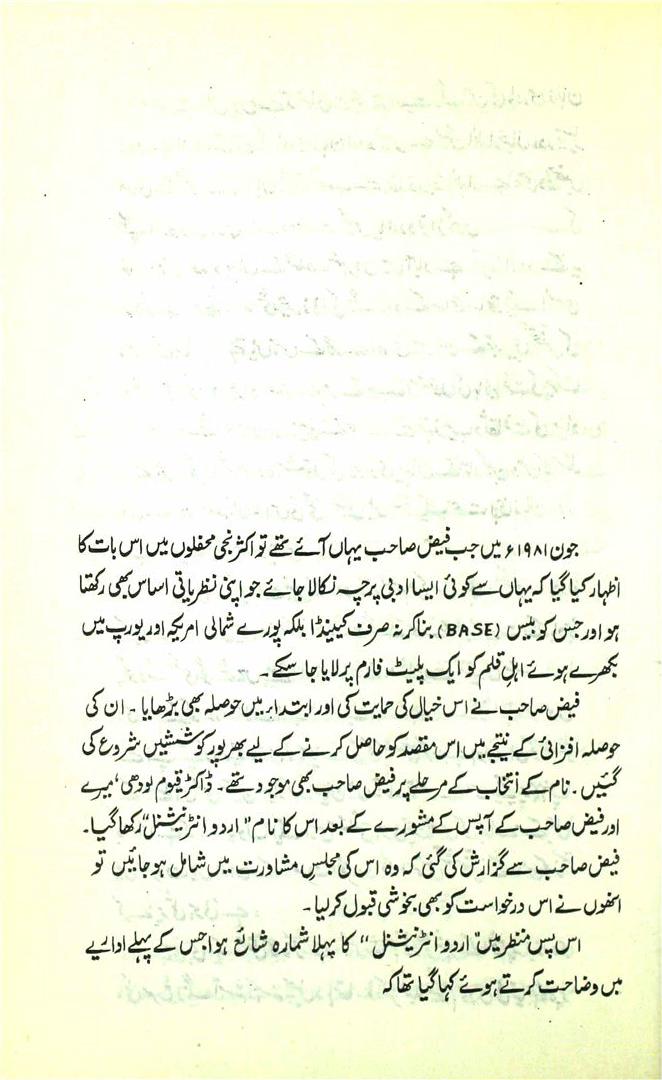 جون ۱۹۸۱ء میں جب فیض صاحب یہاں آئے تھے تو اکثر نجی محفلوں میں اس بات کا
اظہار کیا گیا کہ یہاں سے کوئی ایسا ادبی پرچہ نکالا جائے جو اپنی نظریاتی اساس بھی رکھتا
ہو اور جس کو بیس (BASE) بنا کر نہ صرف کینیڈا بلکہ پورے شمالی امریکہ اور یورپ میں
بکھرے ہوئے اہلِ قلم کو ایک پلیٹ فارم پر لایا جا سکے۔
فیض صاحب نے اس خیال کی حمایت کی اور ابتدا میں حوصلہ بھی بڑھایا۔ ان کی
حوصلہ افزائی کے نتیجے میں اس مقصد کو حاصل کرنے کے لیے بھرپور کوششیں شروع کی
گئیں۔ نام کے انتخاب کے مرحلے پر فیض صاحب بھی موجود تھے۔ ڈاکٹر قیوم لودھی، میرے
اور فیض صاحب کے آپس کے مشورے کے بعد اس کا نام "اردو انٹرنیشنل" رکھا گیا۔
فیض صاحب سے گزارش کی گئی کہ وہ اس کی مجلسِ مشاورت میں شامل ہو جائیں تو
انھوں نے اس درخواست کو بھی بخوشی قبول کر لیا۔
اس پس منظر میں "اردو انٹرنیشنل" کا پہلا شمارہ شائع ہوا جس کے پہلے اداریے
میں وضاحت کرتے ہوئے کہا گیا تھا کہ